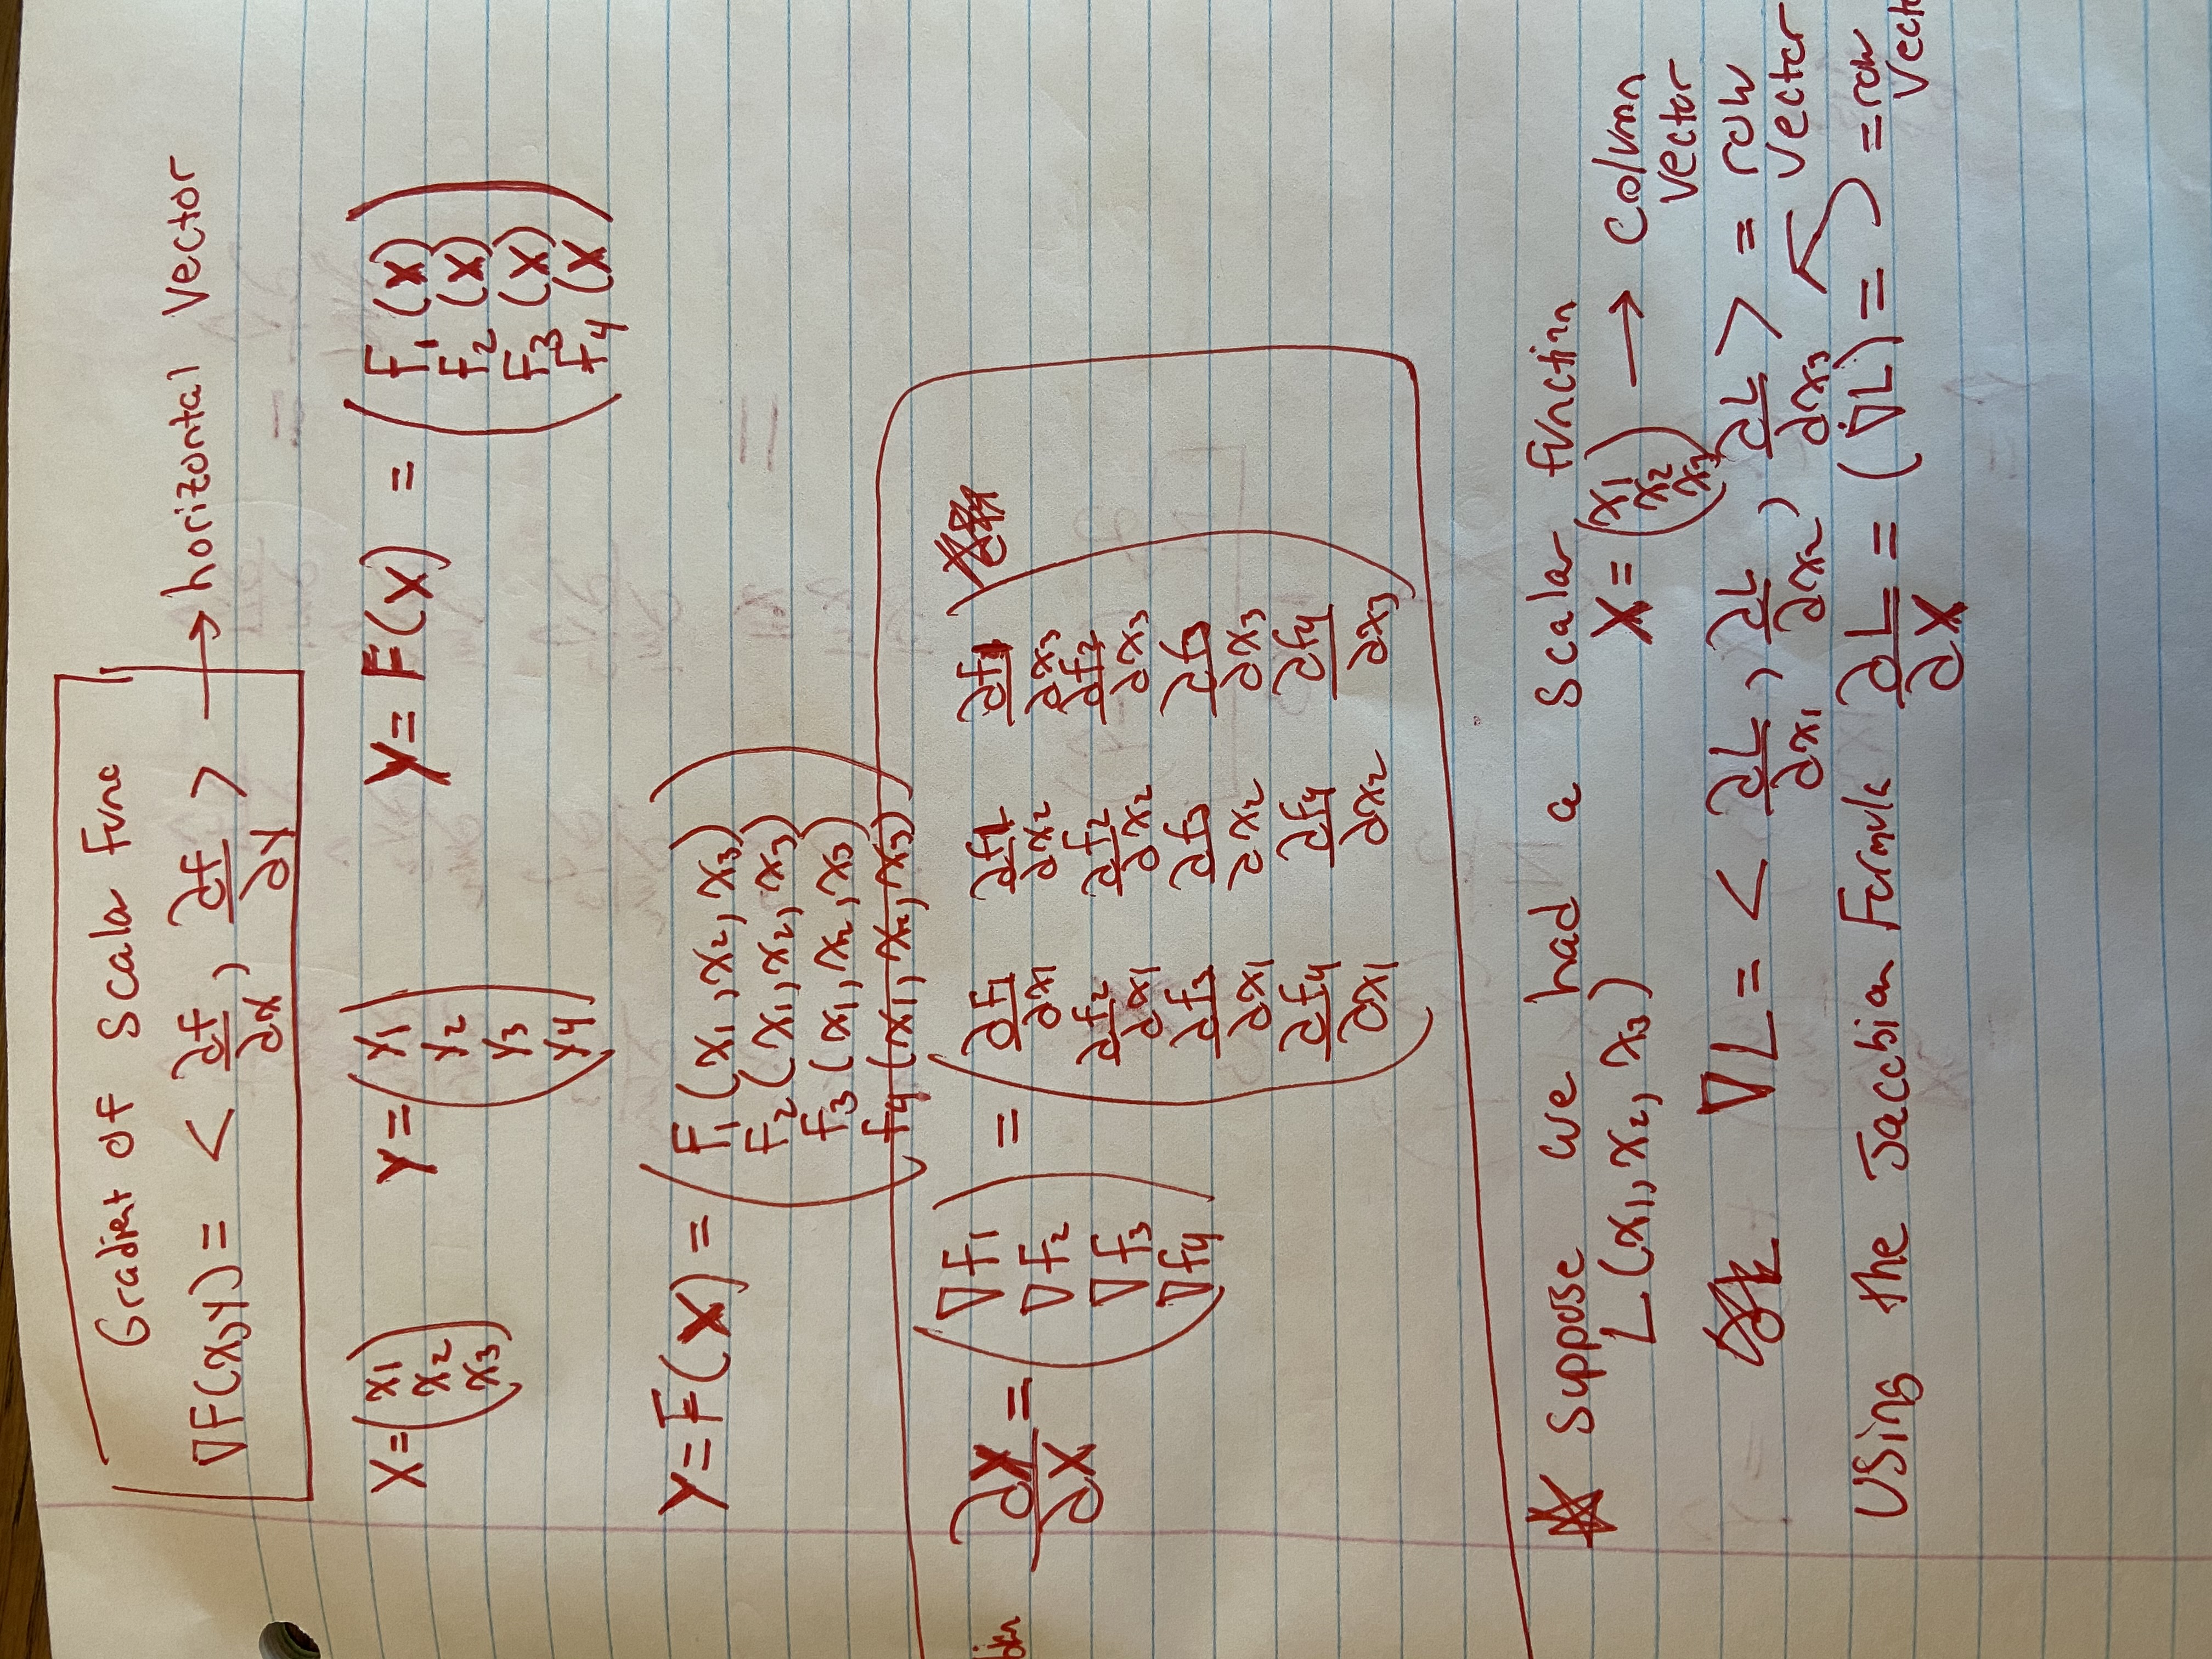 Gradient of scala func
∇F(x,y) = < ∂f/∂x, ∂f/∂y > → horizontal vector
X = (x1 x2 x3) Y = (y1 y2 y3 y4) Y = F(X) = (F1(X) F2(X) F3(X) f4(X)
Y = F(X) = (F1(x1, x2, x3)
F2(x1, x2, x3)
f3(x1, x2, x3)
f4(x1, x2, x3))
∂Y/∂X = (∇f1 ∇f2 ∇f3 ∇f4) = (∂f1/∂x1 ∂f1/∂x2 ∂f1/∂x3
∂f2/∂x1 ∂f2/∂x2 ∂f2/∂x3
∂f3/∂x1 ∂f3/∂x2 ∂f3/∂x3
∂f4/∂x1 ∂f4/∂x2 ∂f4/∂x3)
☆ suppose we had a scalar function
L(x1, x2, x3) X = (x1 x2 x3) → column vector
∇L = < ∂L/∂x1, ∂L/∂x2, ∂L/∂x3 > = row vector
Using the Jacobian Formula ∂L/∂X = (∇L) = = row